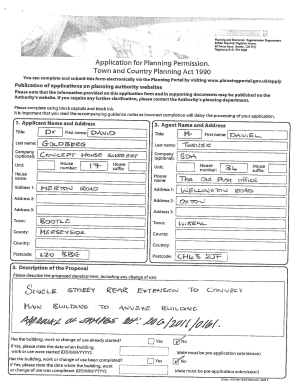 Application for Planning Permission.
Town and Country Planning Act 1990
You can complete and submit this form electronically via the Planning Portal by visiting www.planningportal.gov.uk/apply
Publication of applications on planning authority websites
Please note that the information provided on this application form and in supporting documents may be published on the
Authority's website. If you require any further clarification, please contact the Authority's planning department.
Please complete using block capitals and black ink.
It is important that you read the accompanying guidance notes as incorrect completion will delay the processing of your application.
1. Applicant Name and Address
Title: Dr First name: DAVID
Last name: GOLDBERG
Company (optional): CONCEPT HOUSE SURGERY
Unit: House number: 17 House suffix:
House name:
Address 1: MERTON ROAD
Address 2:
Address 3:
Town: BOOTLE
County: MERSEYSIDE
Country:
Postcode: L20 3BG
2. Agent Name and Address
Title: Mr First name: DANIEL
Last name: TURNER
Company (optional): SDA
Unit: House number: 34 House suffix:
House name: THE OLD POST OFFICE
Address 1: WELLINGTON ROAD
Address 2: OXTON
Address 3:
Town: WIRRAL
County:
Country:
Postcode: CH43 2JF
3. Description of the Proposal
Please describe the proposed development, including any change of use:
SINGLE STOREY REAR EXTENSION TO CONNECT
MAIN BUILDING TO ANNEXE BUILDING
APPROVAL OF SAMPLES REF:
Has the building, work or change of use already started? Yes No
If Yes, please state the date when building,
work or use were started (DD/MM/YYYY): (date must be pre-application submission)
Has the building, work or change of use been completed? Yes No
If Yes, please state the date when the building, work
or change of use was completed: (DD/MM/YYYY): (date must be pre-application submission)